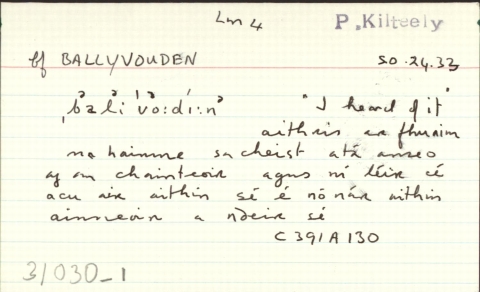 Lm 4 P. Kilteely
bf BALLYVOUDEN SO.24.33
ˌbəliˈvoːdiːnˈ "I heard of it"
aithris ar fhuaim
na hainme sa cheist atá anseo
ag an chainteoir agus ní léir cé
acu air aithin sé é nó nár aithin
ainneoin a ndeir sé
C391A130
31030_1